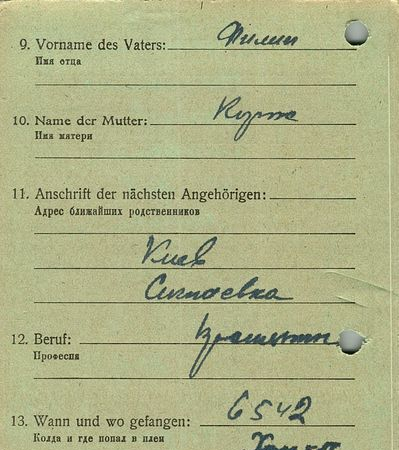 9. Vorname des Vaters: Филип
Имя отца
10. Name der Mutter:
Имя матери
11. Anschrift der nächsten Angehörigen:
Адрес ближайших родственников
Киев
12. Beruf:
Професия
13. Wann und wo gefangen: 6542
Колда и где попал в плен